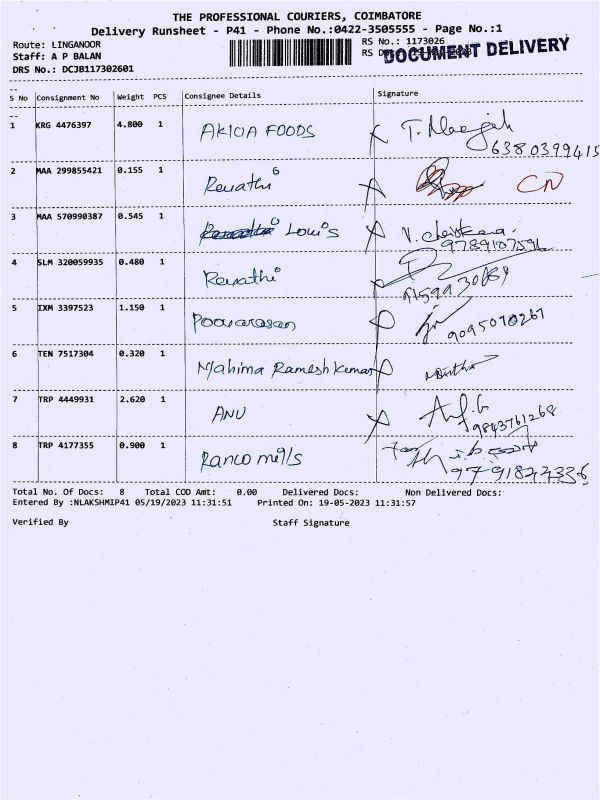 THE PROFESSIONAL COURIERS, COIMBATORE
Delivery Runsheet - P41 - Phone No.:0422-3505555 - Page No.:1
Route: LINGANOOR
RS No.: 1173026
Staff: A P BALAN
RS
DOCUMENT DELIVERY
DRS No.: DC3B117302601
S No Consignment No Weight PCS Consignee Details Signature
1 KRG 4476397 4.800 1 AKICIA FOODS
6380399415
2 MAA 299855421 0.155 1 Revathi CN
3 MAA 570990387 0.545 1 Louis
9789107594
4 SLM 320059935 0.480 1 Revathi
5 IXM 3397523 1.150 1 Poovarasan 9095070267
6 TEN 7517304 0.320 1 Mahima Ramesh Kumar
7 TRP 4449931 2.620 1 ANU
9843761268
8 TRP 4177355 0.900 1 Ranco mills
Total No. Of Docs: 8 Total COD Amt: 0.00 Delivered Docs: Non Delivered Docs:
Entered By :NLAKSHMIP41 05/19/2023 11:31:51 Printed On: 19-05-2023 11:31:57
Verified By Staff Signature